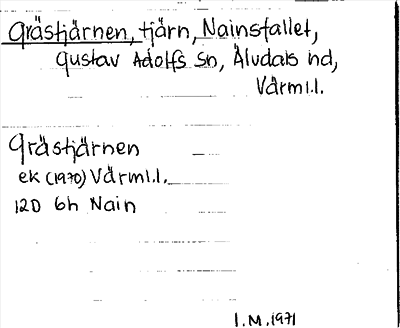 Grästjärnen, tjärn, Nainsfallet,
Gustav Adolfs sn, Älvdals hd,
Värml.l.
Grästjärnen
ek (1970) Värml.l.
12D 6h Nain
I.M. 1971